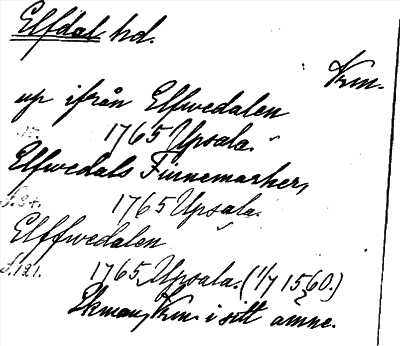 Elfdal hd.
Krm.
up ifrån Elfwedalen
1765 Upsala.
Elfwedals Finnemarker,
S. 34. 1765 Upsala.
Elffwedalen
S. 121. 1765, Upsala. (11/7 1560.)
Ekman, Krm. i sitt ämne.